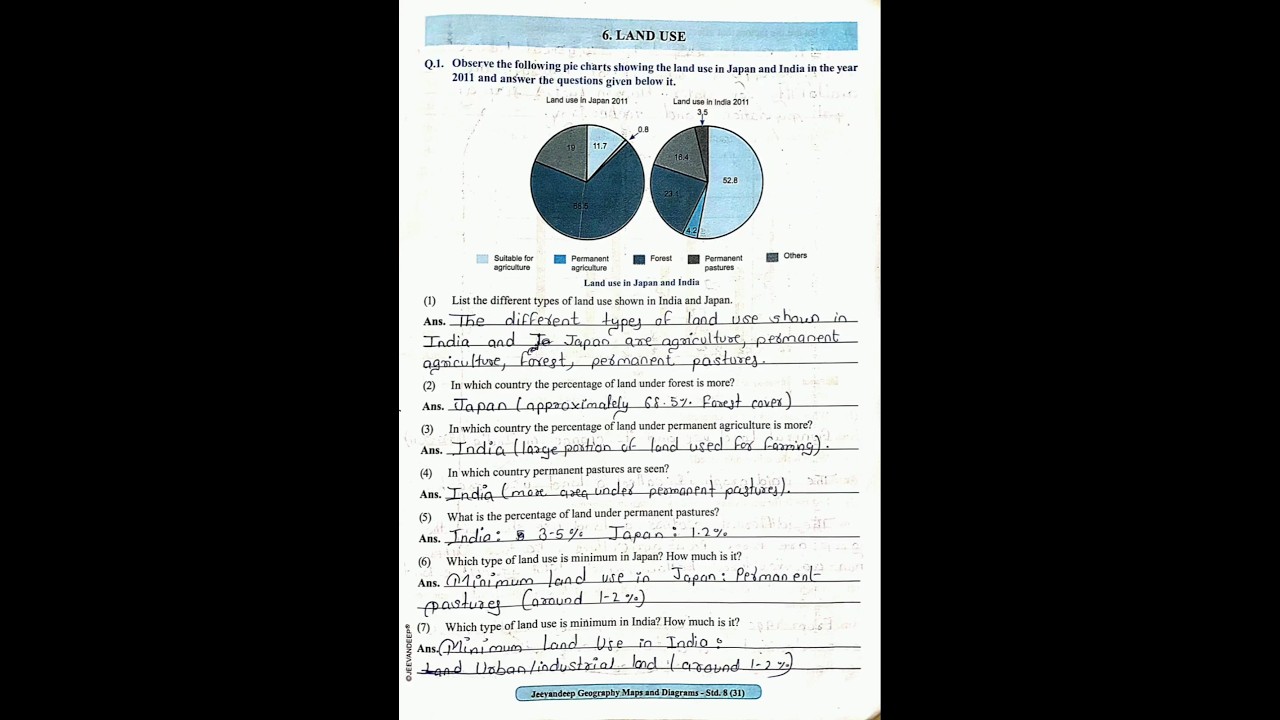 6. LAND USE
Q.1. Observe the following pie charts showing the land use in Japan and India in the year
2011 and answer the questions given below it.
Land use in Japan 2011
Land use in India 2011
3.5
0.8
19
11.7
68.5
16.4
52.8
23.1
4.2
Suitable for
agriculture
Permanent
agriculture
Forest
Permanent
pastures
Others
Land use in Japan and India
(1) List the different types of land use shown in India and Japan.
Ans. The different types of land use shown in
India and Japan are agriculture, permanent
agriculture, forest, permanent pastures.
(2) In which country the percentage of land under forest is more?
Ans. Japan (approximately 68.5% Forest cover)
(3) In which country the percentage of land under permanent agriculture is more?
Ans. India (large portion of land used for farming).
(4) In which country permanent pastures are seen?
Ans. India (more area under permanent pastures).
(5) What is the percentage of land under permanent pastures?
Ans. India: 3-5% Japan: 1.2%
(6) Which type of land use is minimum in Japan? How much is it?
Ans. Minimum land use in Japan: Permanent
pastures (around 1-2%)
(7) Which type of land use is minimum in India? How much is it?
Ans. Minimum land Use in India:
Land Urban/industrial land (around 1-2%)
©JEEVANDEEP®
Jeevandeep Geography Maps and Diagrams - Std. 8 (31)